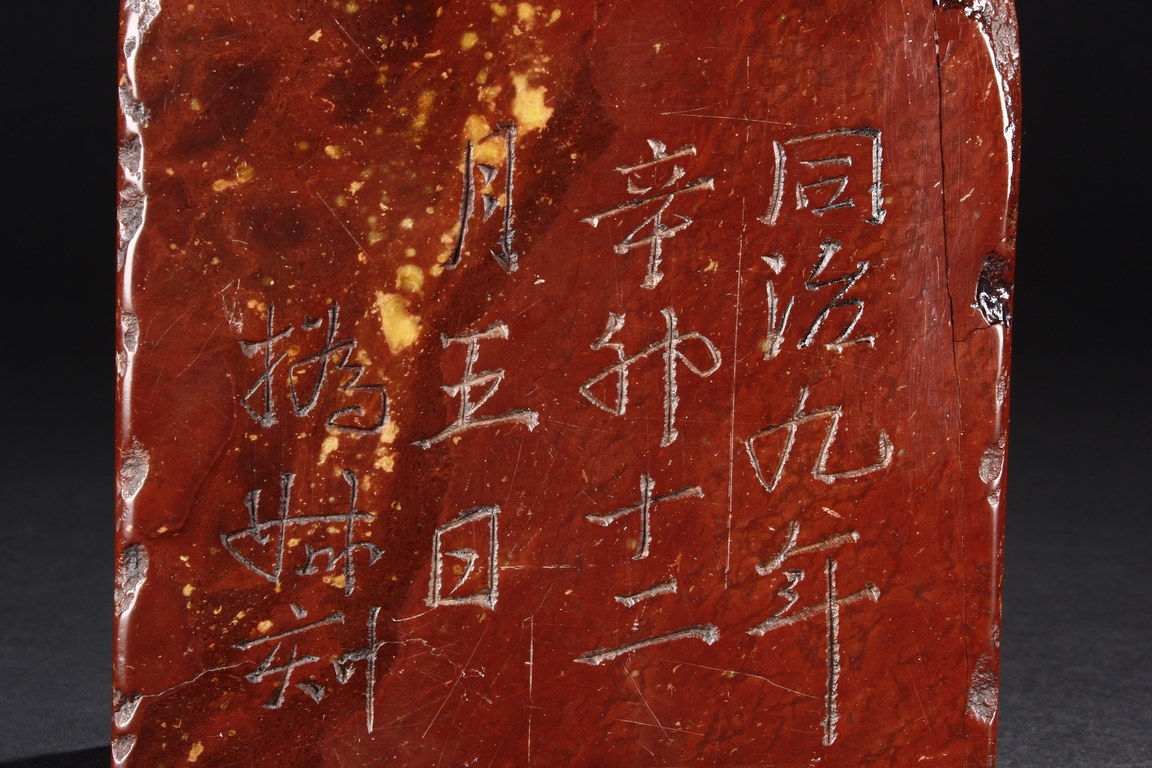 同治九年
辛卯十二
月五日
撝叔刻